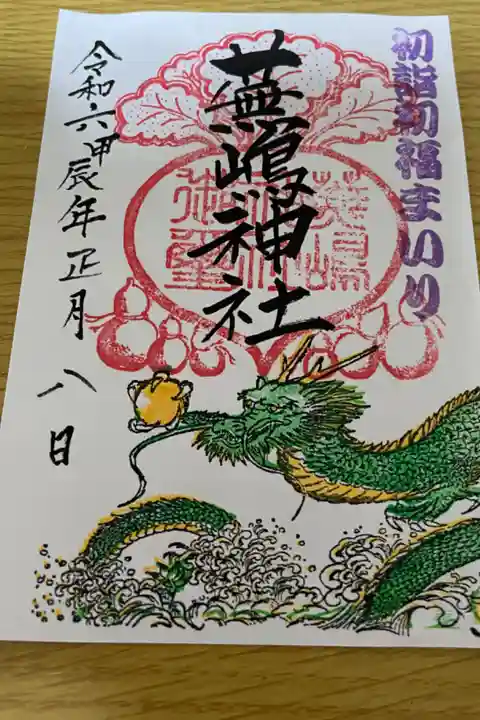 初詣初福まいり
蕪嶋神社
令和六甲辰年正月八日